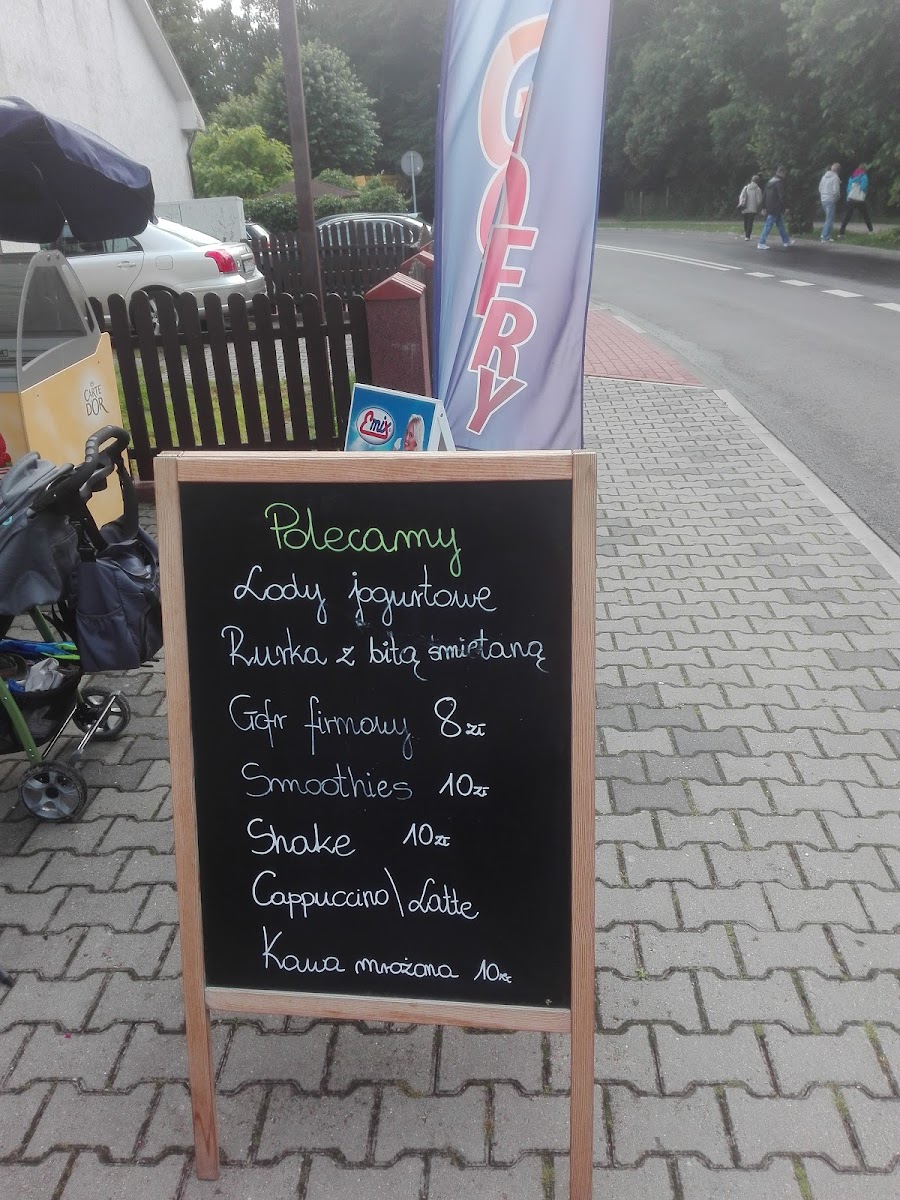 GOFRY
CARTE
D'OR
Emix
Polecamy
Lody jogurtowe
Rurka z bitą śmietaną
Gofr firmowy 8 zł
Smoothies 10 zł
Shake 10 zł
Cappuccino\Latte
Kawa mrożona 10 zł